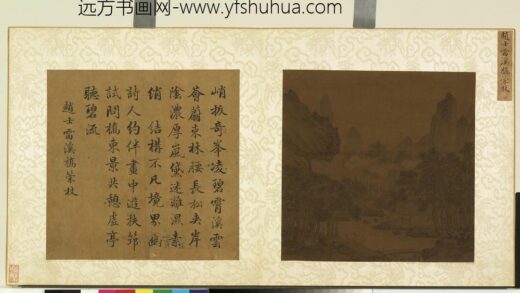 远方书画网-www.yfshuhua.com
趙士雷溪橋策杖
峭拔奇峯凌碧霄溪雲
薈蔚束林腰長松夾岸
陰濃厚
俏結構不凡境界幽
詩人約伴畫中遊扶筇
試問橋東景共憩虛亭
聽碧流
趙士雷溪橋策杖